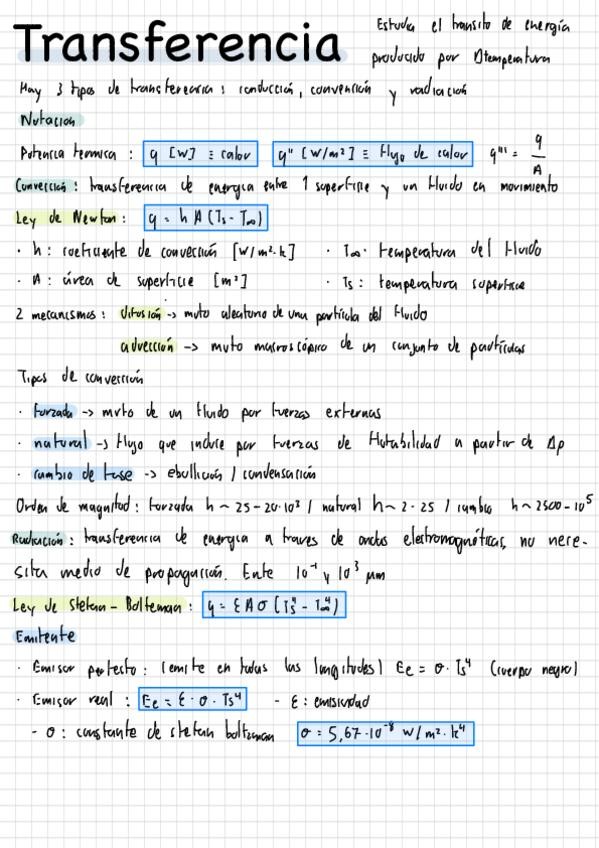 Transferencia
Estudia el transito de energía
producido por Δtemperatura
Hay 3 tipos de transferencia: conducción, convección y radiación
Notacion
Potencia termica: q [W] ≡ calor   q" [W/m²] ≡ flujo de calor   q''' = q/A
Convección: transferencia de energía entre 1 superficie y un fluido en movimiento
Ley de Newton: q = h A (Ts - T∞)
· h: coeficiente de convección [W/m²·k]   · T∞: temperatura del fluido
· A: área de superficie [m²]   · Ts: temperatura superficie
2 mecanismos: difusión -> mvto aleatorio de una partícula del fluido
advección -> mvto macroscópico de un conjunto de partículas
Tipos de convección
· forzada -> mvto de un fluido por fuerzas externas
· natural -> flujo que induce por fuerzas de flotabilidad a partir de Δp
· cambio de fase -> ebullición / condensación
Orden de magnitud: forzada h ~ 25 - 20·10³ / natural h ~ 2 - 25 / cambio h ~ 2500 - 10⁵
Radiación: transferencia de energía a traves de ondas electromagnéticas, no nece-
sita medio de propagación. Ente 10⁻¹ y 10³ μm
Ley de Stefan - Boltzman: q = Ɛ A σ (Ts⁴ - T∞⁴)
Emitente
· Emisor perfecto: (emite en todas las longitudes) Ee = σ · Ts⁴ (cuerpo negro)
· Emisor real: Ee = Ɛ · σ · Ts⁴   - Ɛ: emisividad
- σ: constante de stefan boltzman   σ = 5,67·10⁻⁸ W/m²·k⁴